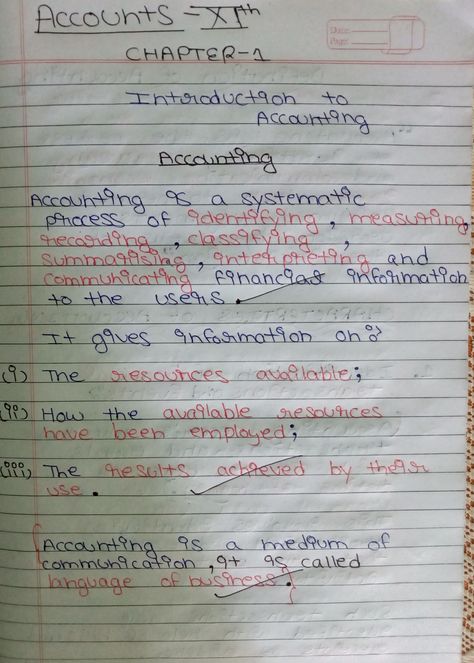 Accounts - XIth
Date:
Page:
CHAPTER-1
Introduction to
Accounting
Accounting
Accounting is a systematic
process of identifing, measuring,
recording, classifying,
summarising, interpreting and
communicating financial information
to the users.
It gives information on:
(i) The resources available;
(ii) How the available resources
have been employed;
(iii) The results achieved by their
use.
Accounting is a medium of
communication, it is called
language of business.